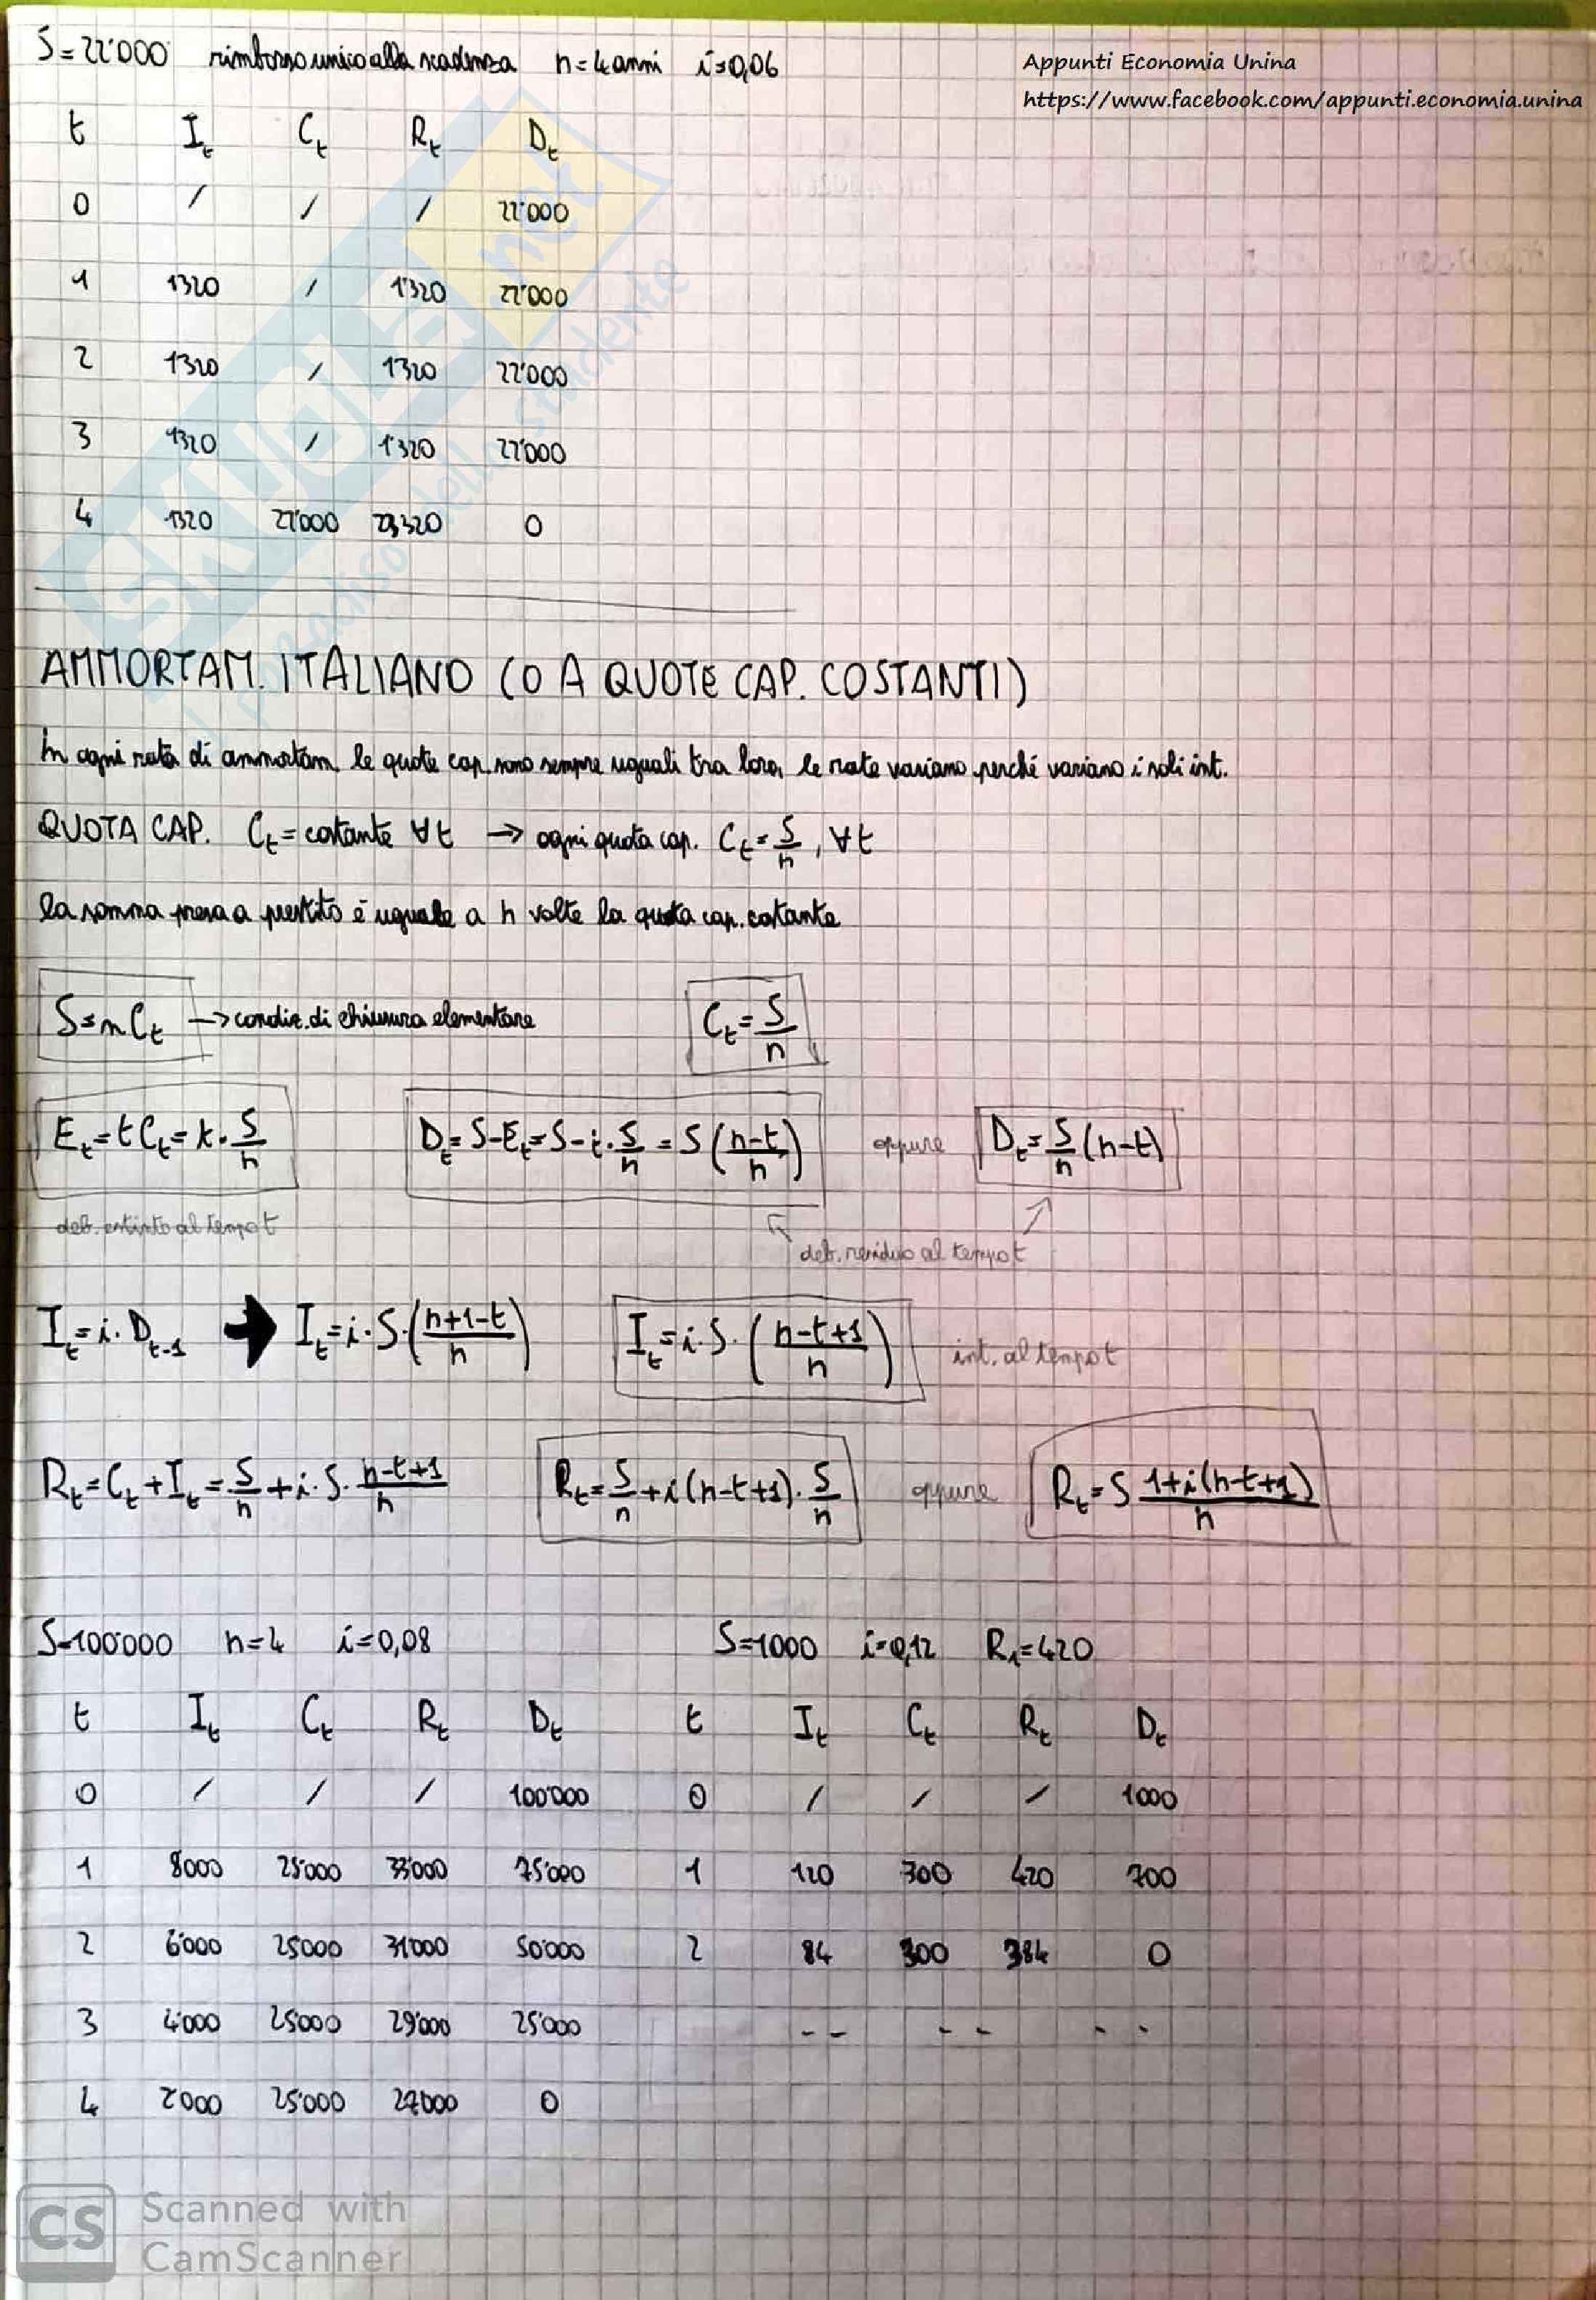 S=22'000 rimborso unico alla scadenza n=4 anni i=0,06
Appunti Economia Unina
https://www.facebook.com/appunti.economia.unina
t I_t C_t R_t D_t
0 / / / 22'000
1 1320 / 1'320 22'000
2 1320 / 1320 22'000
3 1320 / 1'320 22'000
4 1320 22'000 23320 0
SKUOLA.net
il paradiso dello studente
AMMORTAM. ITALIANO (O A QUOTE CAP. COSTANTI)
In ogni rata di ammortam. le quote cap. sono sempre uguali tra loro, le rate variano perché variano i soli int.
QUOTA CAP. C_t = costante ∀t → ogni quota cap. C_t = S/n, ∀t
la somma presa a prestito è uguale a n volte la quota cap. costante
S=nC_t → condiz. di chiusura elementare C_t = S/n
E_t = tC_t = t · S/n D_t = S-E_t = S - t · S/n = S((n-t)/n) oppure D_t = S/n (n-t)
deb. estinto al tempo t
deb. residuo al tempo t
I_t = i · D_t-1 → I_t = i · S · ((n+1-t)/n) I_t = i · S · ((n-t+1)/n) int. al tempo t
R_t = C_t + I_t = S/n + i · S · (n-t+1)/n R_t = S/n + i(n-t+1) · S/n oppure R_t = S (1+i(n-t+1))/n
S=100'000 n=4 i=0,08 S=1000 i=0,12 R_1=420
t I_t C_t R_t D_t t I_t C_t R_t D_t
0 / / / 100'000 0 / / / 1000
1 8000 25'000 33'000 75'000 1 120 300 420 700
2 6'000 25000 31'000 50'000 2 84 300 384 0
3 4'000 25'000 29'000 25'000 -- -- --
4 2'000 25'000 27'000 0
CS Scanned with
CamScanner